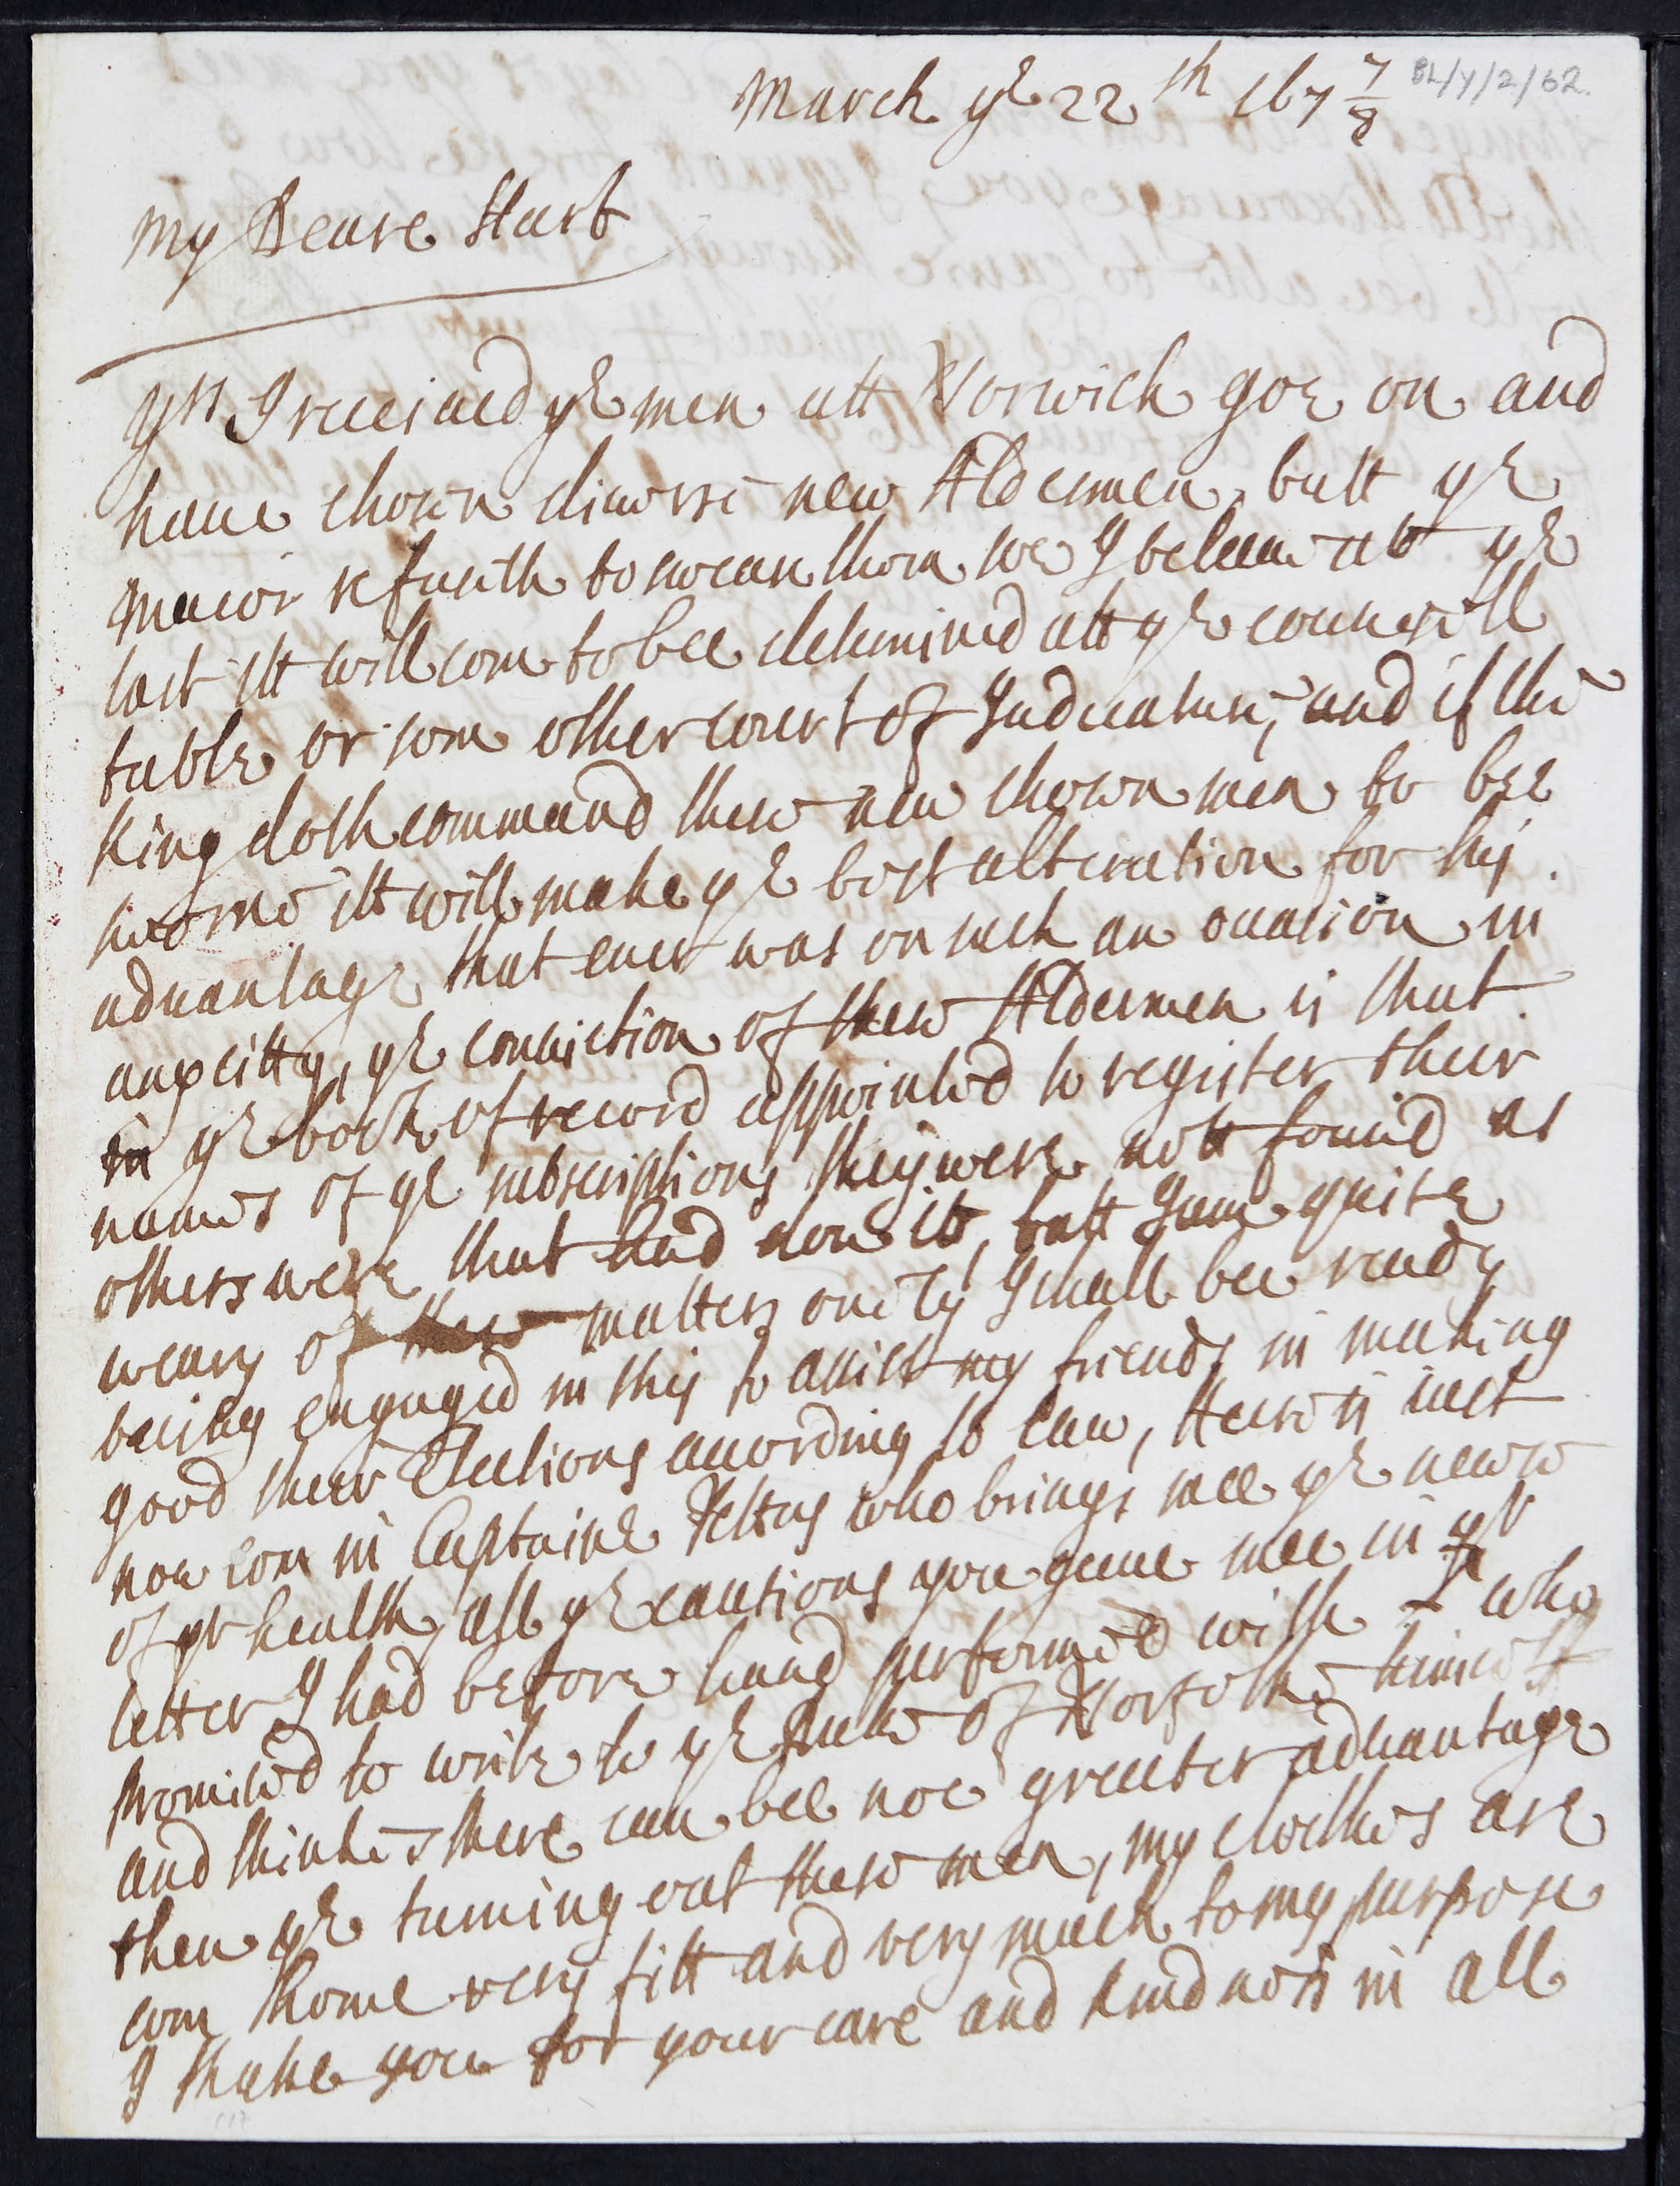 March ye 22th 167 7/8
BL/Y/2/62.
My Deare Hart
yrs I receiued ye men att Norwich goe on and
haue chosen diuerse new Aldermen, butt ye
maior refuseth to sweare them soe I beleeue att ye
last itt will com to bee determined att ye councell
table or som other court of Judicature, and if the
King doth command these new chosen men to bee
sworne itt will make ye best alteration for his
aduantage that euer was on such an occasion in
any citty, ye conuiction of these Aldermen is that
in ye book of record appointed to register their
names of ye subscriptions they were nott found as
others were that had don it, butt I am quite
weary of these matters onely I shall bee ready
beeing engaged in this to assist my friends in making
good their Elections according to law, Heere is iust
now com in Captaine Pettus who brings mee ye newes
of yr health, all ye cautions you gaue mee in yr
letter I had before hand performed with who
promised to write to ye Duke of Norfolke himselfe
and thinkes there can bee noe greater aduantage
then ye turning out these men, my clothes are
com home very fitt and very much to my purpose
I thanke you for your care and kindness in all